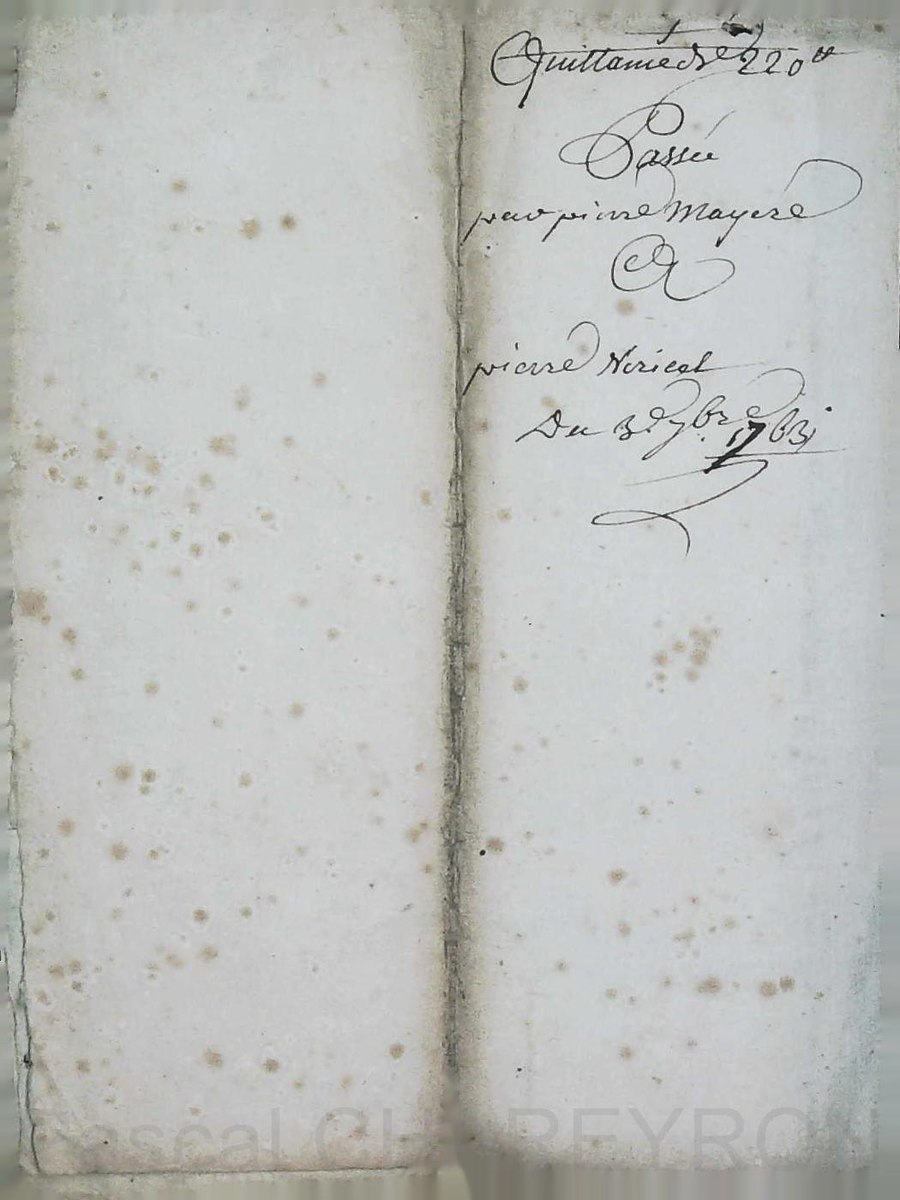 Quittance de 220ᵗᵗ
Passée
par pierre Mayere
Et
pierre
Du 3ᵉ 7bre 1763
Pascal CHAREYRON